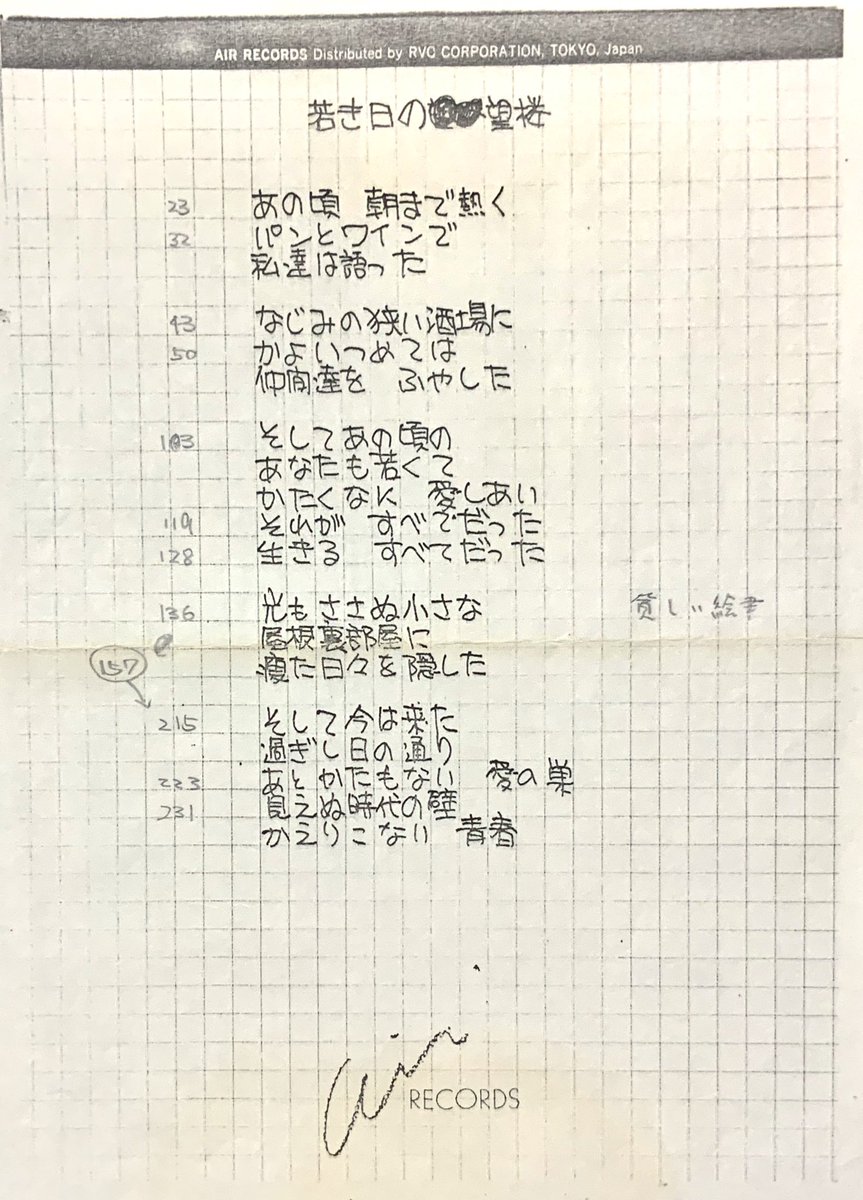 AIR RECORDS Distributed by RVC CORPORATION, TOKYO, Japan
若き日の望楼
23 あの頃 朝まで熱く
32 パンとワインで
私達は語った
43 なじみの狭い酒場に
50 かよいつめては
仲間達を ふやした
103 そしてあの頃の
あなたも若くて
かたくなに 愛しあい
119 それが すべてだった
128 生きる すべてだった
136 光もささぬ小さな 貧しい絵書
屋根裏部屋に
157 瘦た日々を隠した
215 そして今は来た
過ぎし日の通り
223 あとかたもない 愛の巣
231 見えぬ時代の壁
かえりこない 青春
air RECORDS